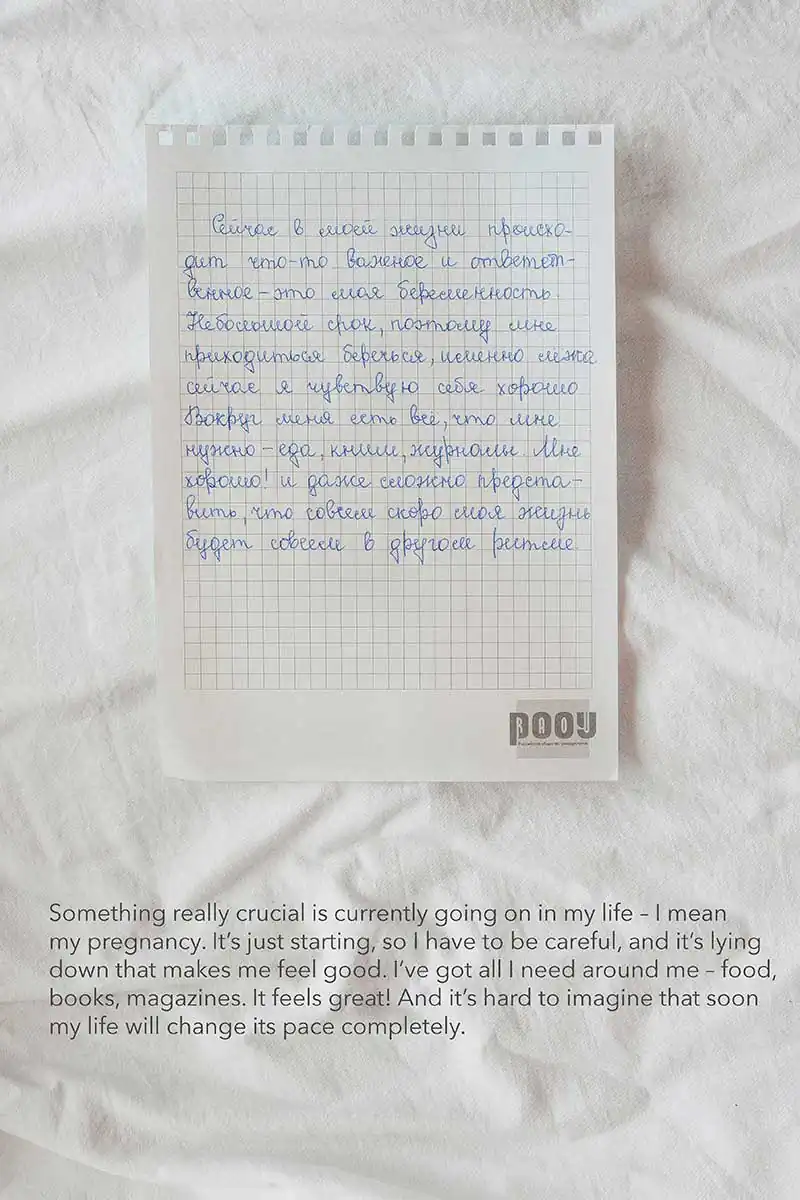 Сейчас в моей жизни происхо-
дит что-то важное и ответст-
венное – это моя беременность.
Небольшой срок, поэтому мне
приходиться беречься, именно лежа
сейчас я чувствую себя хорошо
Вокруг меня есть всё, что мне
нужно – еда, книги, журналы. Мне
хорошо! и даже сложно предста-
вить, что совсем скоро моя жизнь
будет совсем в другом ритме.
РООУ
RAOU
Something really crucial is currently going on in my life – I mean
my pregnancy. It's just starting, so I have to be careful, and it's lying
down that makes me feel good. I've got all I need around me – food,
books, magazines. It feels great! And it's hard to imagine that soon
my life will change its pace completely.